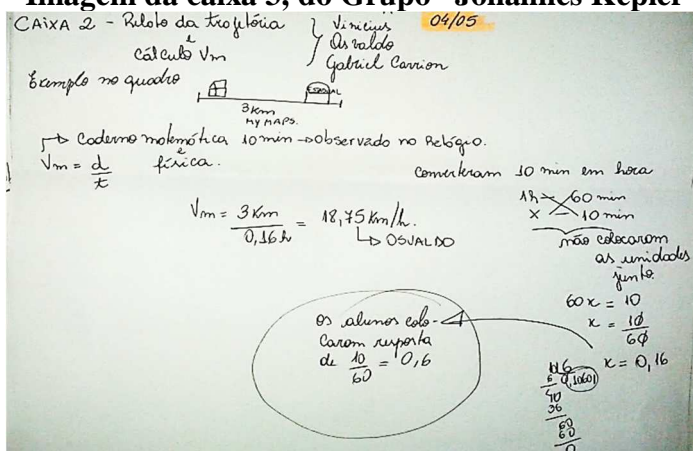 Imagem da caixa 3, do Grupo "Johannes Kepler"
CAIXA 2 - Relato da trajetória
e
Cálculo Vm
Vinicius
Osvaldo
Gabriel Carrion
04/05
Exemplo no quadro
3 Km
MY MAPS.
→ Caderno matemática 10 min → observado no Relógio.
e
física.
Vm = d/t
converteram 10 min em hora
1h 60 min
x 10 min
não colocaram
as unidades
junto.
Vm = 3 Km / 0,16 h = 18,75 Km/h.
↳ OSVALDO
60x = 10
x = 10/60
x = 0,16
Os alunos colo-
caram resposta
de 10/60 = 0,6
40
36
60
60
0